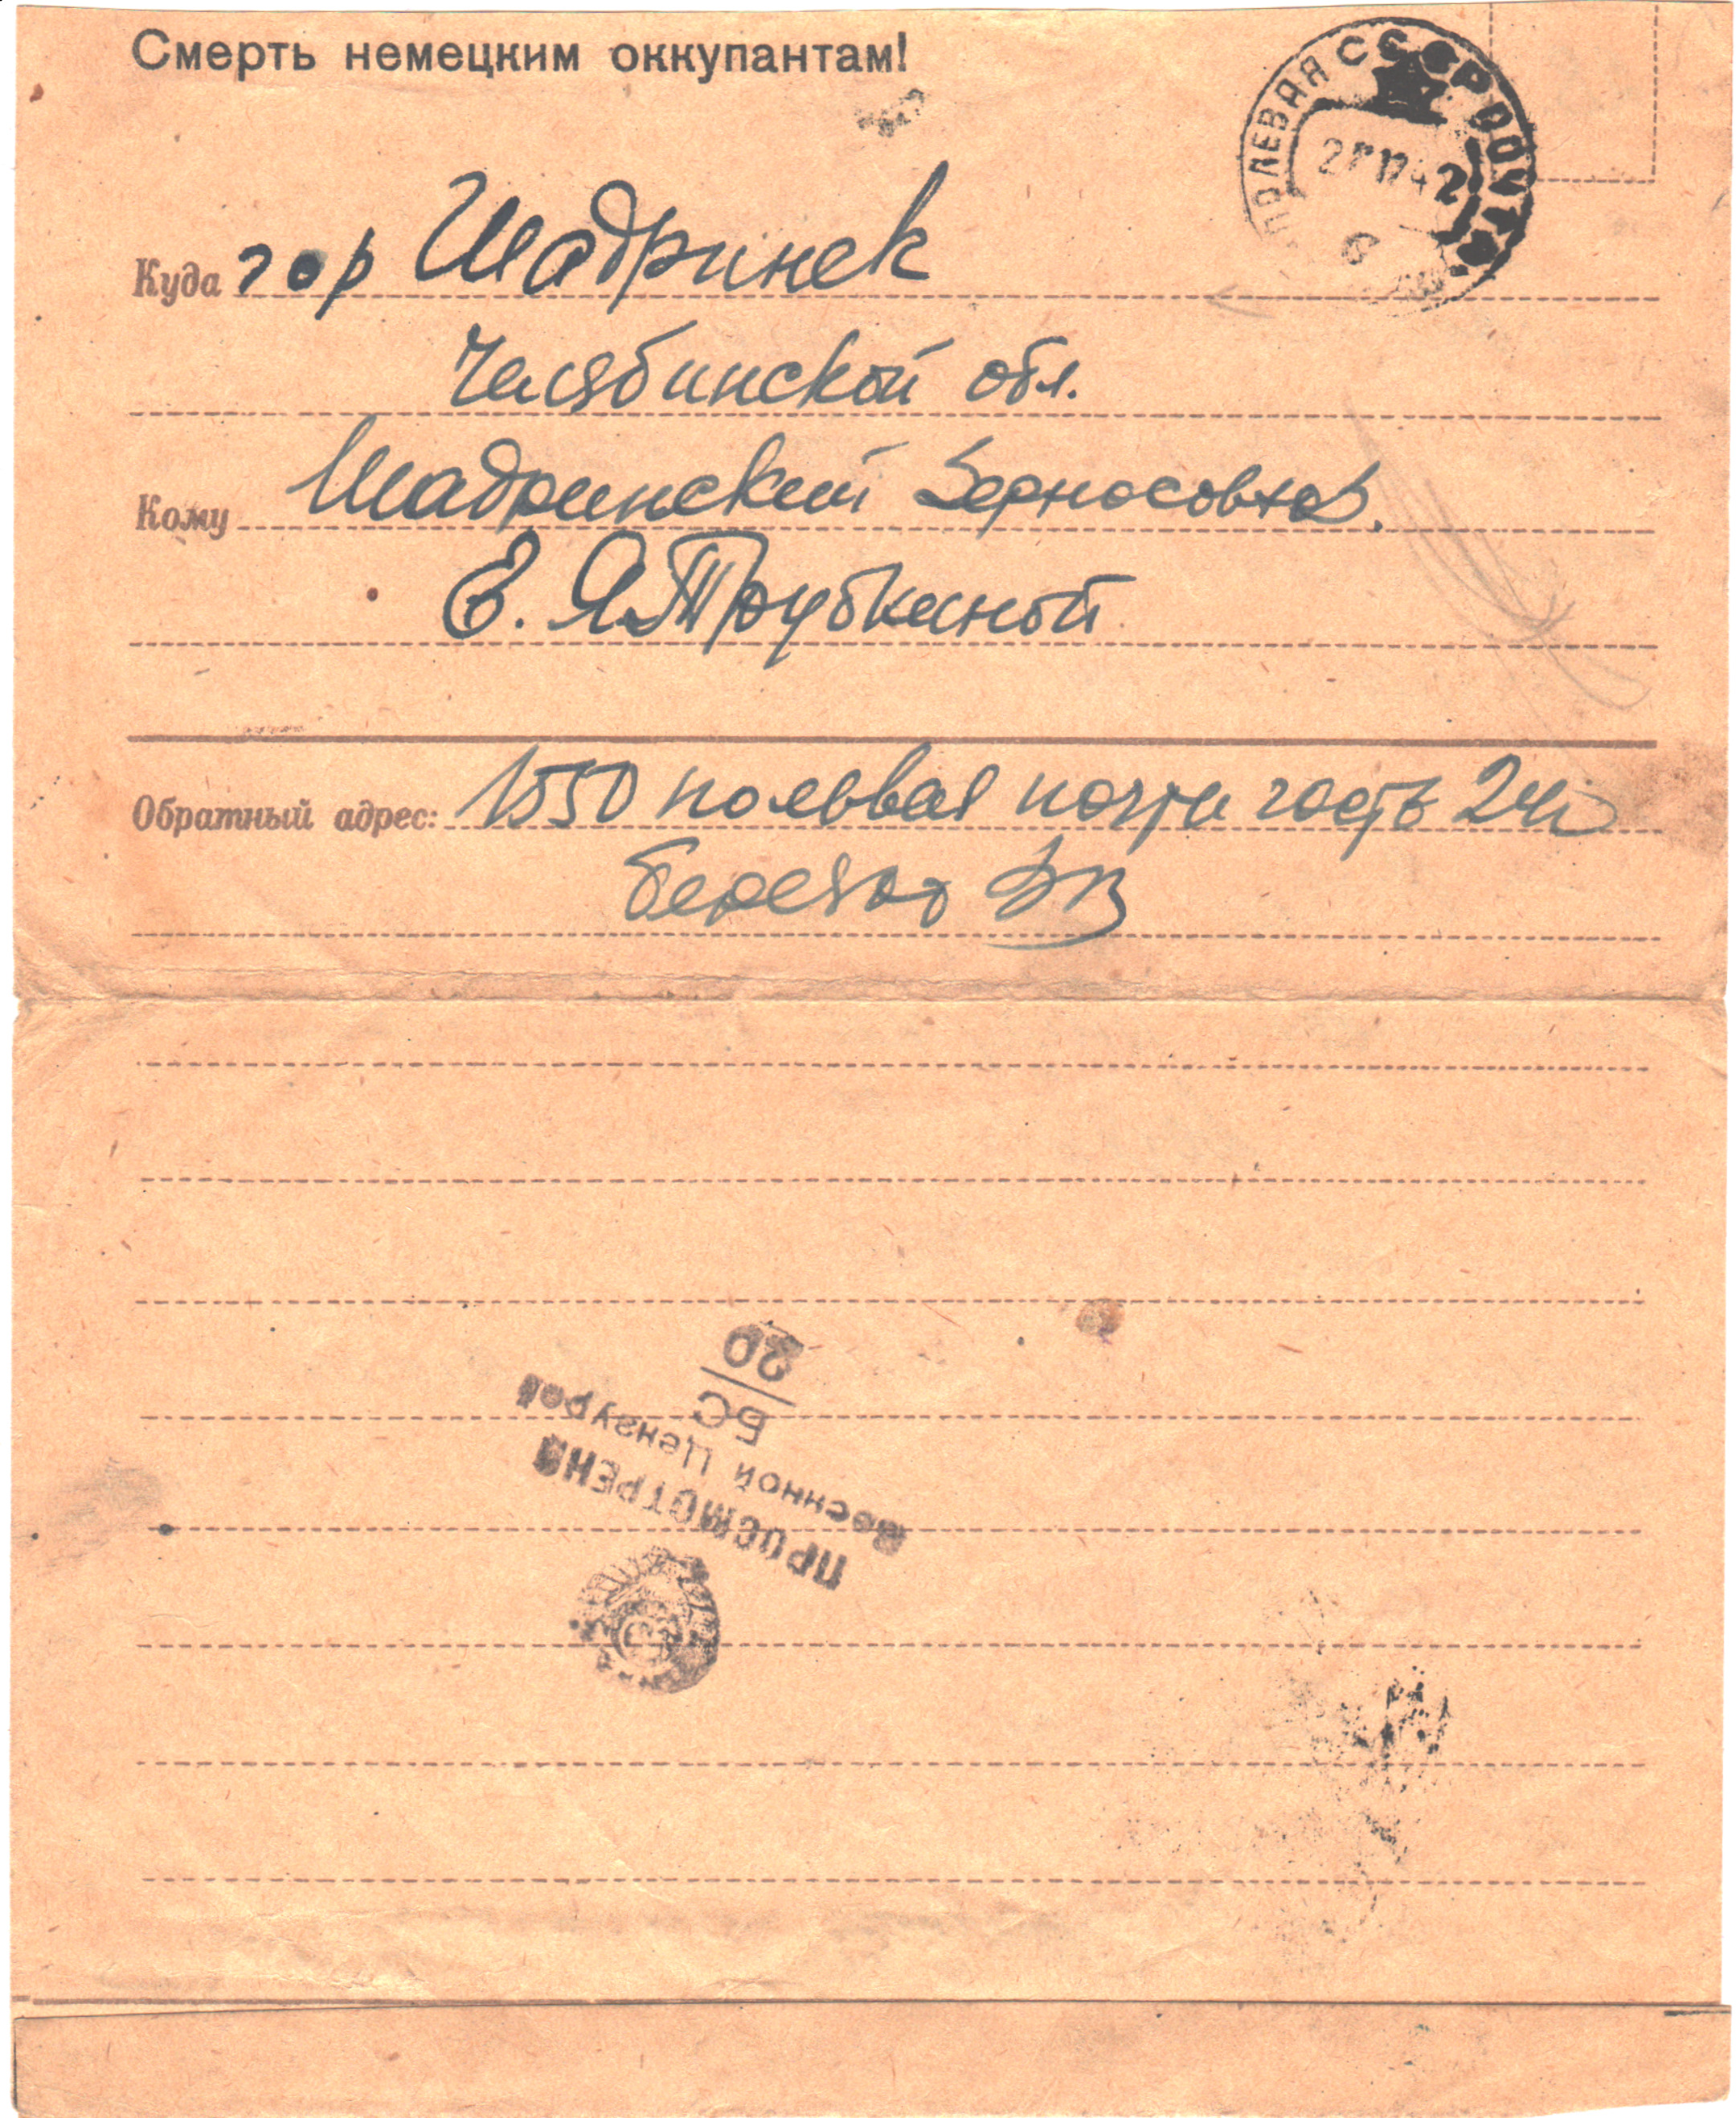 Смерть немецким оккупантам!
ПОЛЕВАЯ СССР ПОЧТА
42
6
Куда гор Шадринск
Челябинской обл.
Кому Шадринский Зерносовхоз.
Е. Я. Трубкиной
Обратный адрес: 1550 полевая почта часть
ПРОСМОТРЕНО
Военной Цензурой
БС
20